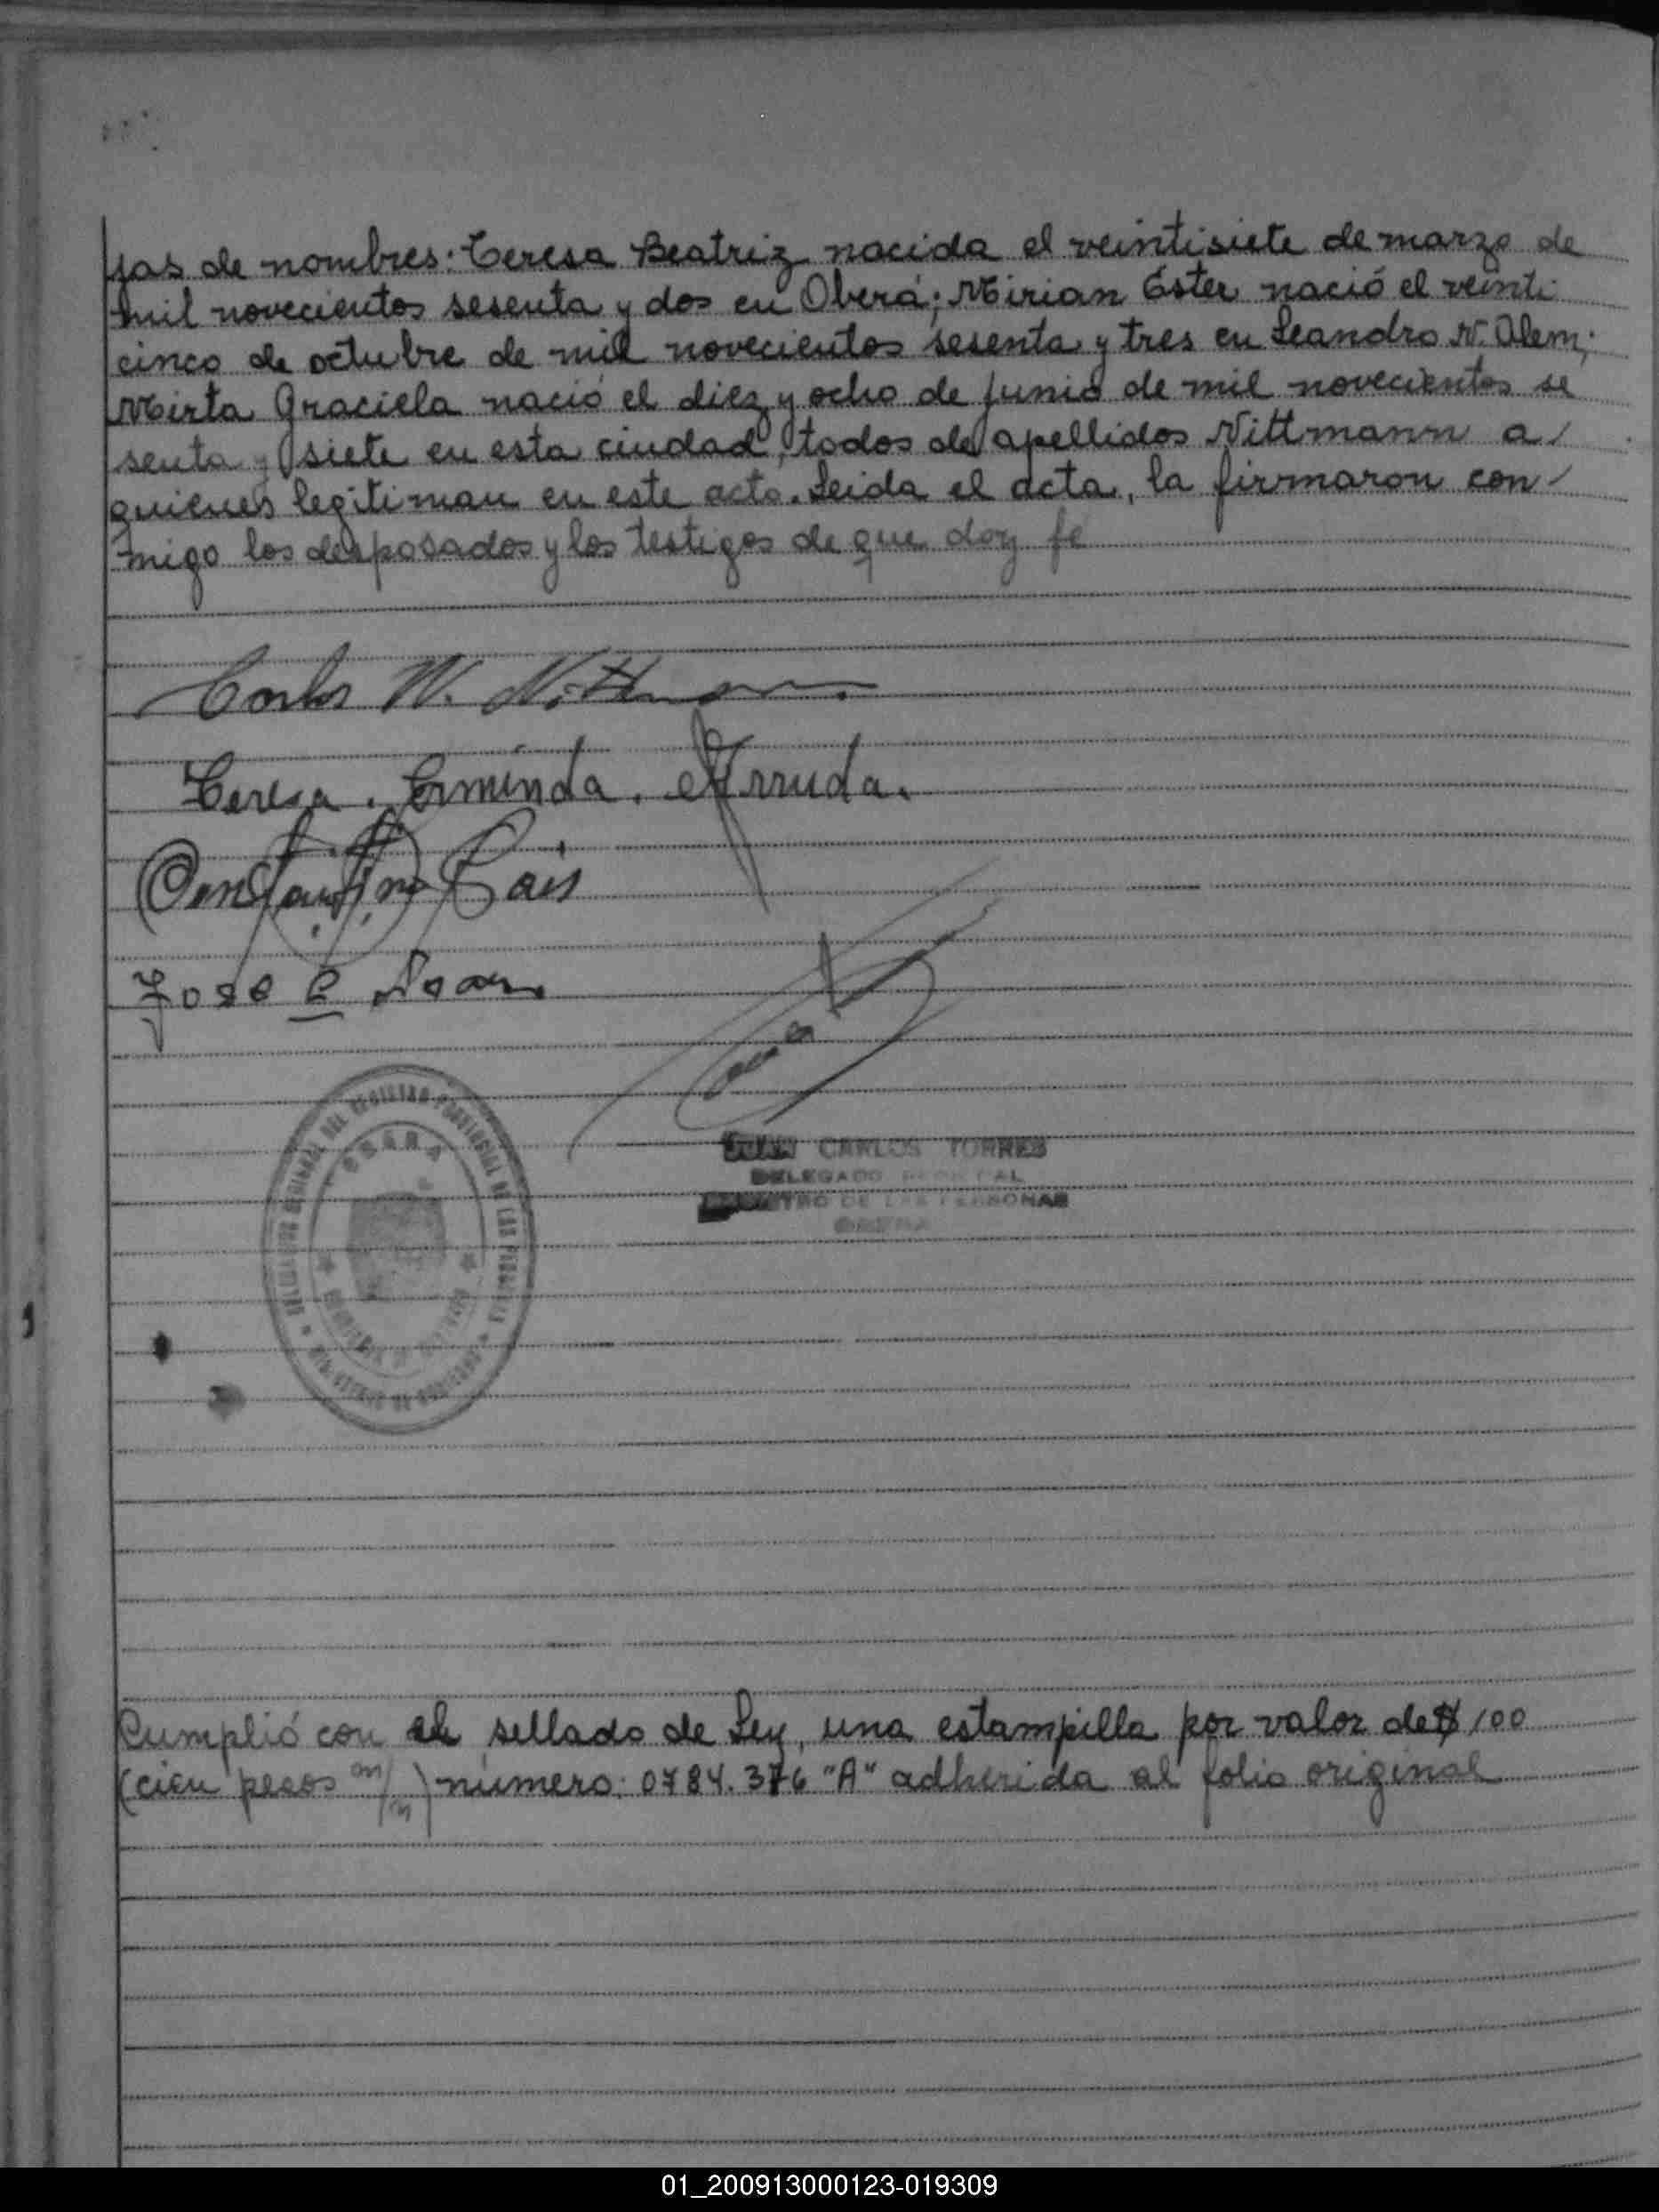 jas de nombres: Teresa Beatriz nacida el veintisiete de marzo de
mil novecientos sesenta y dos en Oberá; Mirian Ester nació el veinti
cinco de octubre de mil novecientos sesenta y tres en Leandro N. Alem;
Mirta Graciela nació el diez y ocho de junio de mil novecientos se
senta y siete en esta ciudad, todos de apellidos Nittmann a/
quienes legitiman en este acto. Leida el acta, la firmaron con/
migo los desposados y los testigos de que doy fe
Carlos W. Nittmann
Teresa. Erminda. Arruda.
Constantino
Jose
JUAN CARLOS TORRES
DELEGADO
REGISTRO DE LAS PERSONAS
OBERA
DEL REGISTRO PROVINCIAL DE LAS PERSONAS
OBERA
Cumplió con el sellado de Ley, una estampilla por valor de $ 100
(cien pesos m/n) número: 0784.376 "A" adherida al folio original
01_200913000123-019309